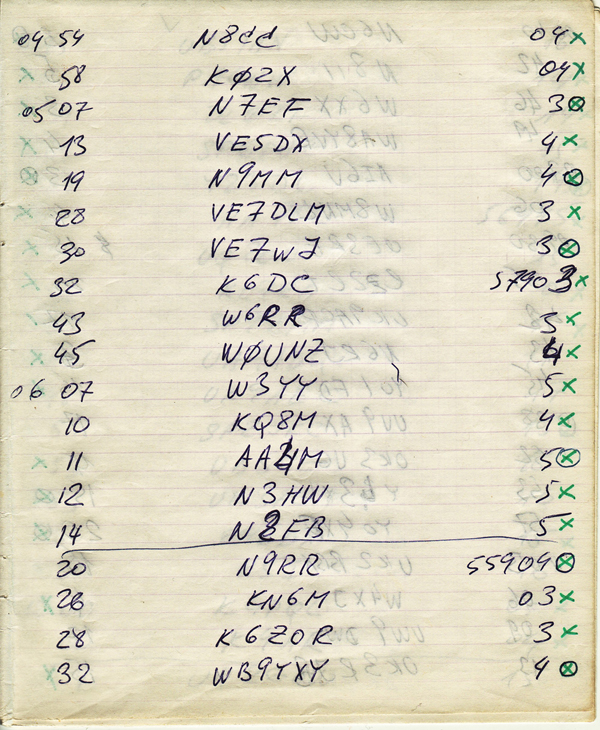 04 54 N8CC 04 x
58 KØ2X 04 x
05 07 N7EF 3 ⊗
13 VE5DX 4 x
19 N9MM 4 ⊗
28 VE7DLM 3 x
30 VE7WJ 3 ⊗
32 K6DC 57903 x
43 W6RR 3 x
45 WØUNZ 4 x
06 07 W3YY 5 x
10 KQ8M 4 x
11 AA4M 5 ⊗
12 N3HW 5 x
14 N2FB 5 x
20 N9RR 55904 ⊗
26 KN6M 03 x
28 K6ZOR 3 x
32 WB9YXY 4 ⊗